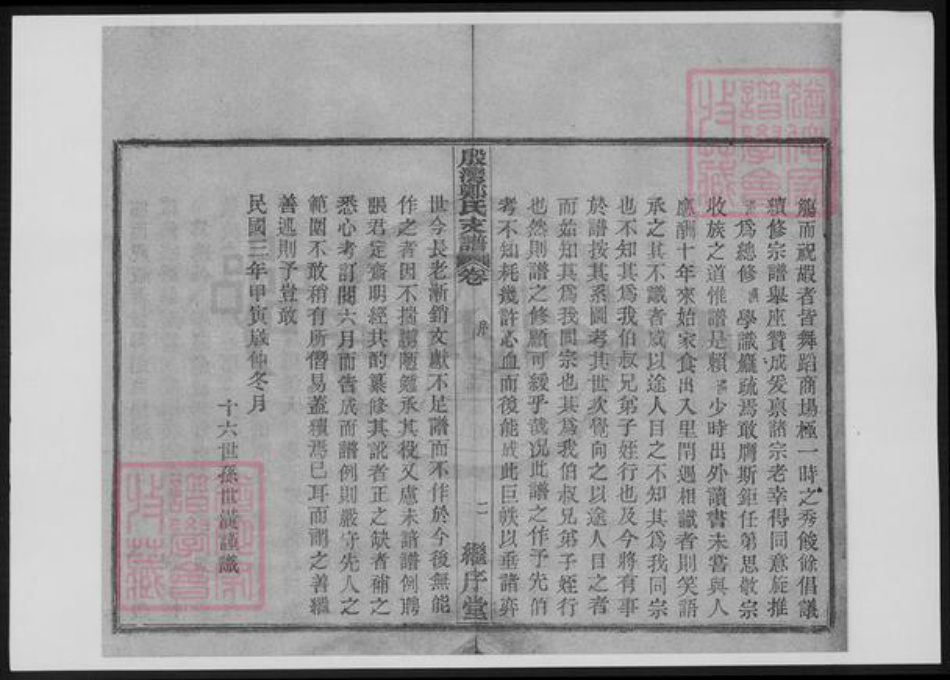 觴而祝嘏者皆舞蹈商場極一時之秀餕餘倡議
續修宗譜舉座贊成爰禀諸宗老幸得同意旋推
漢爲總修漢學識篷疏焉敢膺斯鉅任第思敬宗
收族之道惟譜是賴漢少時出外讀書未嘗與人
應酬十年來始家食出入里閈遇相識者則笑語
承之其不識者咸以途人目之不知其爲我同宗
也不知其爲我伯叔兄弟子姪行也及今將有事
於譜按其系圖考其世次覺向之以途人目之者
而始知其爲我同宗也其爲我伯叔兄弟子姪行
也然則譜之修顧可緩乎哉况此譜之作予先伯
考不知耗幾許心血而後能成此巨帙以垂諸弈
殷灣鄭氏支譜 卷 序 二 繼序堂
世今長老漸銷文獻不足譜而不作於今後無能
作之者因不揣譾陋勉承其役又慮未諳譜例聘
張君定齋明經共酌纂修其訛者正之缺者補之
悉心考訂閱六月而告成而譜例則嚴守先人之
範圍不敢稍有所僭易蓋續焉已耳而謂之善繼
善述則予豈敢
民國三年甲寅歲仲冬月
十六世孫世漢謹識
譜學會
收藏
譜學會
收藏